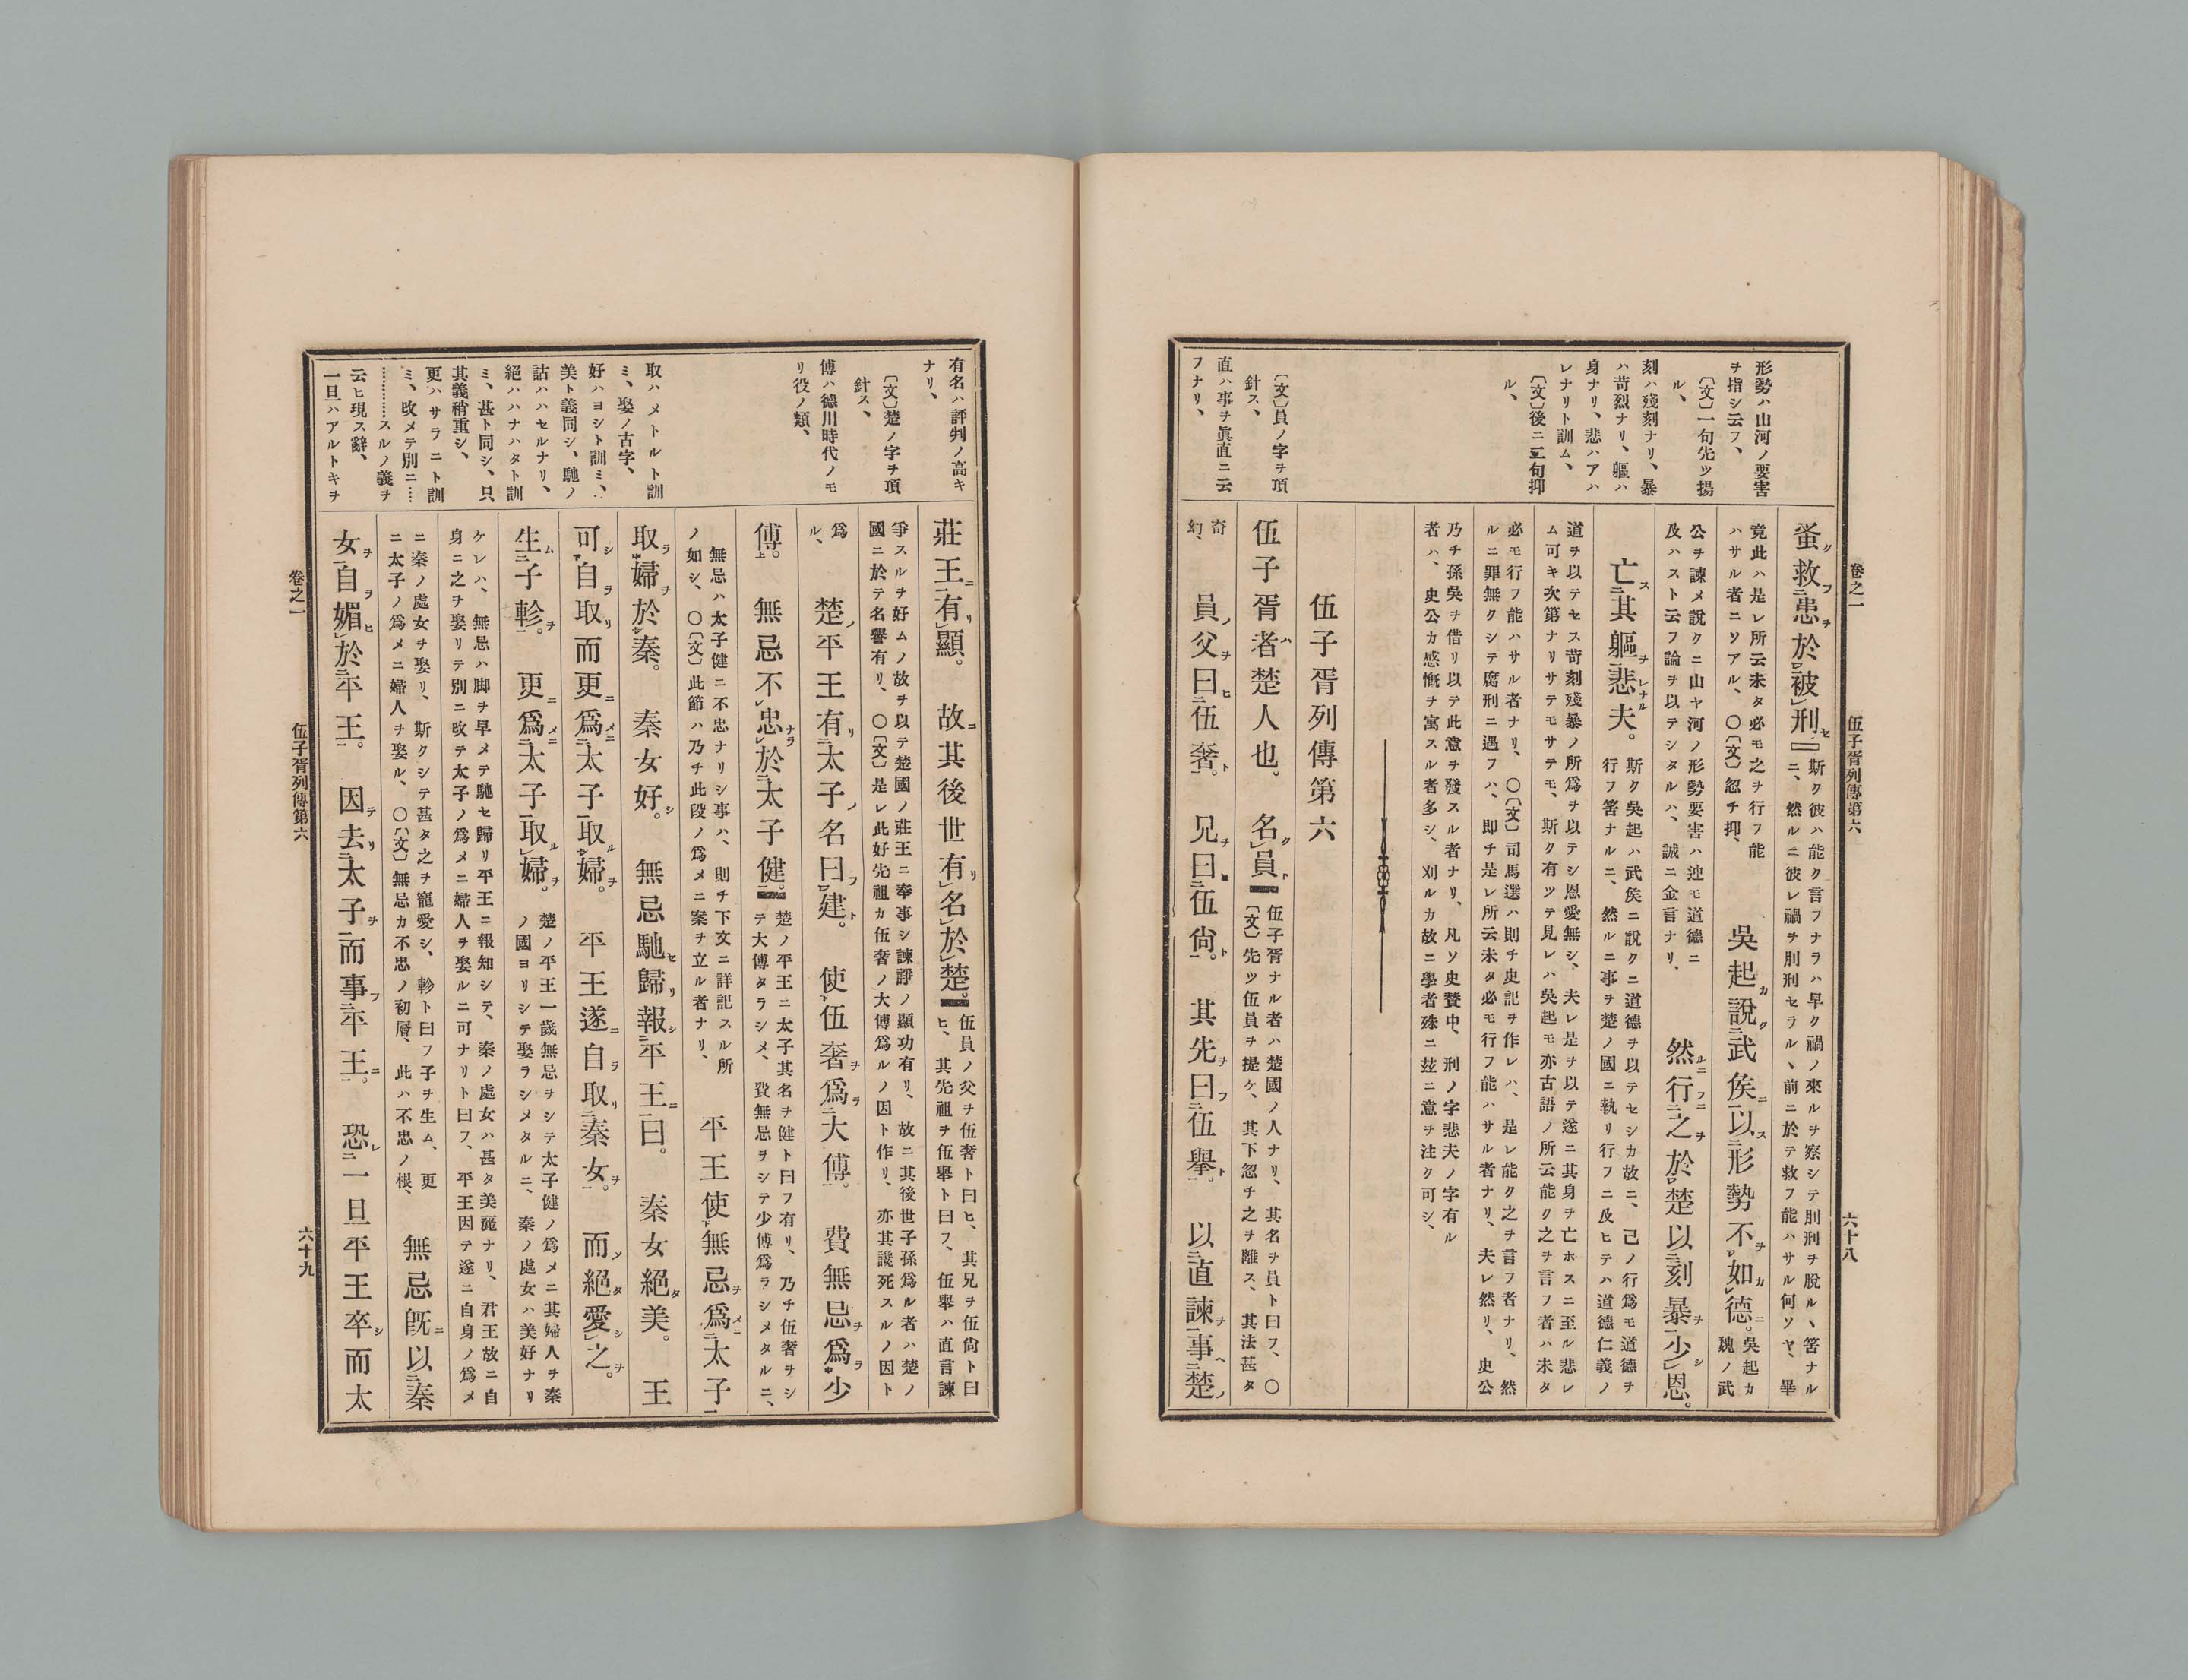 形勢ハ山河ノ要害
ヲ指シ云フ、
〔文〕一句先ツ揚
ル、
刻ハ殘刻ナリ、暴
ハ苛烈ナリ、軀ハ
身ナリ、悲ハアハ
レナリト訓ム、
〔文〕後ニ二句抑
ル、
〔文〕員ノ字ヲ頂
針ス、
直ハ事ヲ眞直ニ云
フナリ、
卷之一 伍子胥列傳第六 六十八
蚤救患於被刑
斯ク彼ハ能ク言フナラハ早ク禍ノ來ルヲ察シテ刖刑ヲ脫ルヽ筈ナル
ニ、然ルニ彼レ禍ヲ刖刑セラルヽ前ニ於テ救フ能ハサル何ソヤ、畢
竟此ハ是レ所云未タ必モ之ヲ行フ能
ハサル者ニソアル、〇〔文〕忽チ抑、
吳起說武矦以形勢不如德。
吳起カ
魏ノ武
公ヲ諫メ說クニ山ヤ河ノ形勢要害ハ迚モ道德ニ
及ハスト云フ論ヲ以テシタルハ、誠ニ金言ナリ、
然行之於楚以刻暴少恩。
亡其軀悲夫。
斯ク吳起ハ武矦ニ說クニ道德ヲ以テセシカ故ニ、己ノ行爲モ道德ヲ
行フ筈ナルニ、然ルニ事ヲ楚ノ國ニ執リ行フニ及ヒテハ道德仁義ノ
道ヲ以テセス苛刻殘暴ノ所爲ヲ以テシ恩愛無シ、夫レ是ヲ以テ遂ニ其身ヲ亡ホスニ至ル悲レ
ム可キ次第ナリサテモサテモ、斯ク有ツテ見レハ吳起モ亦古語ノ所云能ク之ヲ言フ者ハ未タ
必モ行フ能ハサル者ナリ、〇〔文〕司馬選ハ則チ史記ヲ作レハ、是レ能ク之ヲ言フ者ナリ、然
ルニ罪無クシテ腐刑ニ遇フハ、即チ是レ所云未タ必モ行フ能ハサル者ナリ、夫レ然リ、史公
乃チ孫吳ヲ借リ以テ此意ヲ發スル者ナリ、凡ソ史贊中、刑ノ字悲夫ノ字有ル
者ハ、史公カ感慨ヲ寓スル者多シ、刈ルカ故ニ學者殊ニ玆ニ意ヲ注ク可シ、
伍子胥列傳第六
伍子胥者楚人也。名員
伍子胥ナル者ハ楚國ノ人ナリ、其名ヲ員ト曰フ、〇
〔文〕先ツ伍員ヲ提ケ、其下忽チ之ヲ離ス、其法甚タ
奇
幻、
員父曰伍奢。兄曰伍尙。其先曰伍擧。以直諫事楚
有名ハ評判ノ高キ
ナリ、
〔文〕楚ノ字ヲ頂
針ス、
傅ハ德川時代ノモ
リ役ノ類、
取ハメトルト訓
ミ、娶ノ古字、
好ハヨシト訓ミ、
美ト義同シ、馳ノ
詁ハハセルナリ、
絕ハハナハタト訓
ミ、甚ト同シ、只
其義稍重シ、
更ハサラニト訓
ミ、改メテ別ニ……
…………スルノ義ヲ
云ヒ現ス辭、
一旦ハアルトキヲ
莊王有顯。故其後世有名於楚。
伍員ノ父ヲ伍奢ト曰ヒ、其兄ヲ伍尙ト曰
ヒ、其先祖ヲ伍擧ト曰フ、伍擧ハ直言諫
爭スルヲ好ムノ故ヲ以テ楚國ノ莊王ニ奉事シ諫諍ノ顯功有リ、故ニ其後世子孫爲ル者ハ楚ノ
國ニ於テ名譽有リ、〇〔文〕是レ此好先祖カ伍奢ノ大傅爲ルノ因ト作リ、亦其讒死スルノ因ト
爲
ル、
楚平王有太子名曰建。使伍奢爲大傅。費無忌爲少
傅。無忌不忠於太子健。
楚ノ平王ニ太子其名ヲ健ト曰フ有リ、乃チ伍奢ヲシ
テ大傅タラシメ、費無忌ヲシテ少傅爲ラシメタルニ、
無忌ハ太子健ニ不忠ナリシ事ハ、則チ下文ニ詳記スル所
ノ如シ、〇〔文〕此節ハ乃チ此段ノ爲メニ案ヲ立ル者ナリ、
平王使無忌爲太子
取婦於秦。秦女好。無忌馳歸報平王曰。秦女絕美。王
可自取而更爲太子取婦。平王遂自取秦女。而絕愛之。
生子軫。更爲太子取婦。
楚ノ平王一歲無忌ヲシテ太子健ノ爲メニ其婦人ヲ秦
ノ國ヨリシテ娶ラシメタルニ、秦ノ處女ハ美好ナリ
ケレハ、無忌ハ脚ヲ早メテ馳セ歸リ平王ニ報知シテ、秦ノ處女ハ甚タ美麗ナリ、君王故ニ自
身ニ之ヲ娶リテ別ニ改テ太子ノ爲メニ婦人ヲ娶ルニ可ナリト曰フ、平王因テ遂ニ自身ノ爲メ
ニ秦ノ處女ヲ娶リ、斯クシテ甚タ之ヲ寵愛シ、軫ト曰フ子ヲ生ム、更
ニ太子ノ爲メニ婦人ヲ娶ル、〇〔文〕無忌カ不忠ノ初層、此ハ不忠ノ根、
無忌旣以秦
女自媚於平王。因去太子而事平王。恐一旦平王卒而太
卷之一 伍子胥列傳第六 六十九